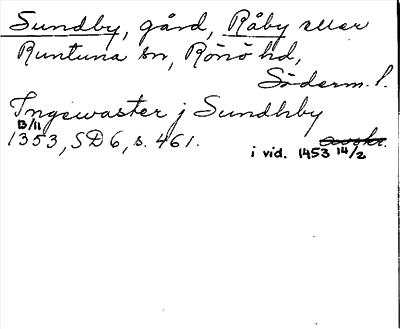 Sundby, gård, Råby eller
Runtuna sn, Rönö hd,
Söderm. l.
Ingewaster j Sundhby
13/11
1353, SD 6, s. 461. avskr.
i vid. 1453 14/2